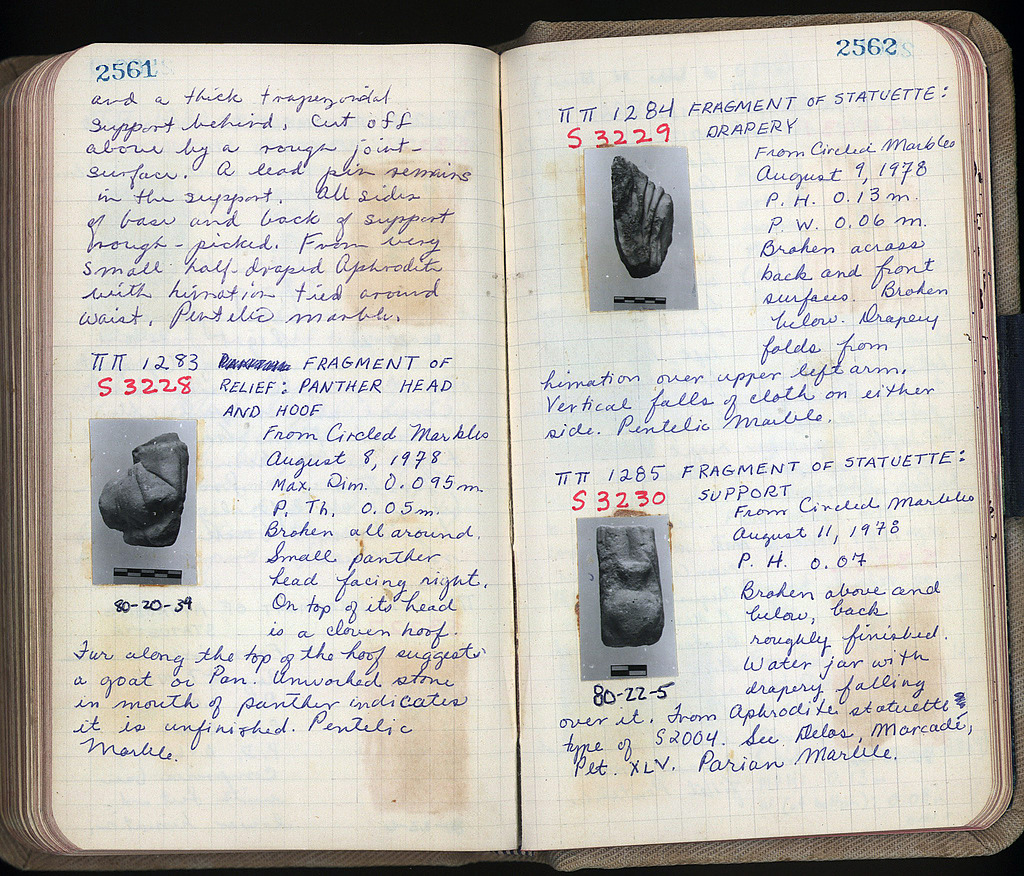 2561
and a thick trapezoidal
support behind. Cut off
above by a rough joint-
surface. A lead pin remains
in the support. All sides
of base and back of support
rough-picked. From very
small half-draped Aphrodite
with himation tied around
waist. Pentelic marble.
ΠΠ 1283 FRAGMENT OF
S 3228 RELIEF: PANTHER HEAD
AND HOOF
From Circled Marbles
August 8, 1978
Max. Dim. 0.095 m.
P. Th. 0.05 m.
Broken all around.
Small panther
head facing right.
On top of its head
is a cloven hoof.
80-20-39
Fur along the top of the hoof suggests
a goat or Pan. Unworked stone
in mouth of panther indicates
it is unfinished. Pentelic
Marble.
2562
ΠΠ 1284 FRAGMENT OF STATUETTE:
S 3229 DRAPERY
From Circled Marbles
August 9, 1978
P. H. 0.13 m.
P. W. 0.06 m.
Broken across
back and front
surfaces. Broken
below. Drapery
folds from
himation over upper left arm.
Vertical falls of cloth on either
side. Pentelic Marble.
ΠΠ 1285 FRAGMENT OF STATUETTE:
S 3230 SUPPORT
From Circled Marbles
August 11, 1978
P. H. 0.07
Broken above and
below, back
roughly finished.
Water jar with
drapery falling
80-22-5
over it. From Aphrodite statuette
type of S2004. See Delos, Marcadé,
Plt. XLV. Parian Marble.